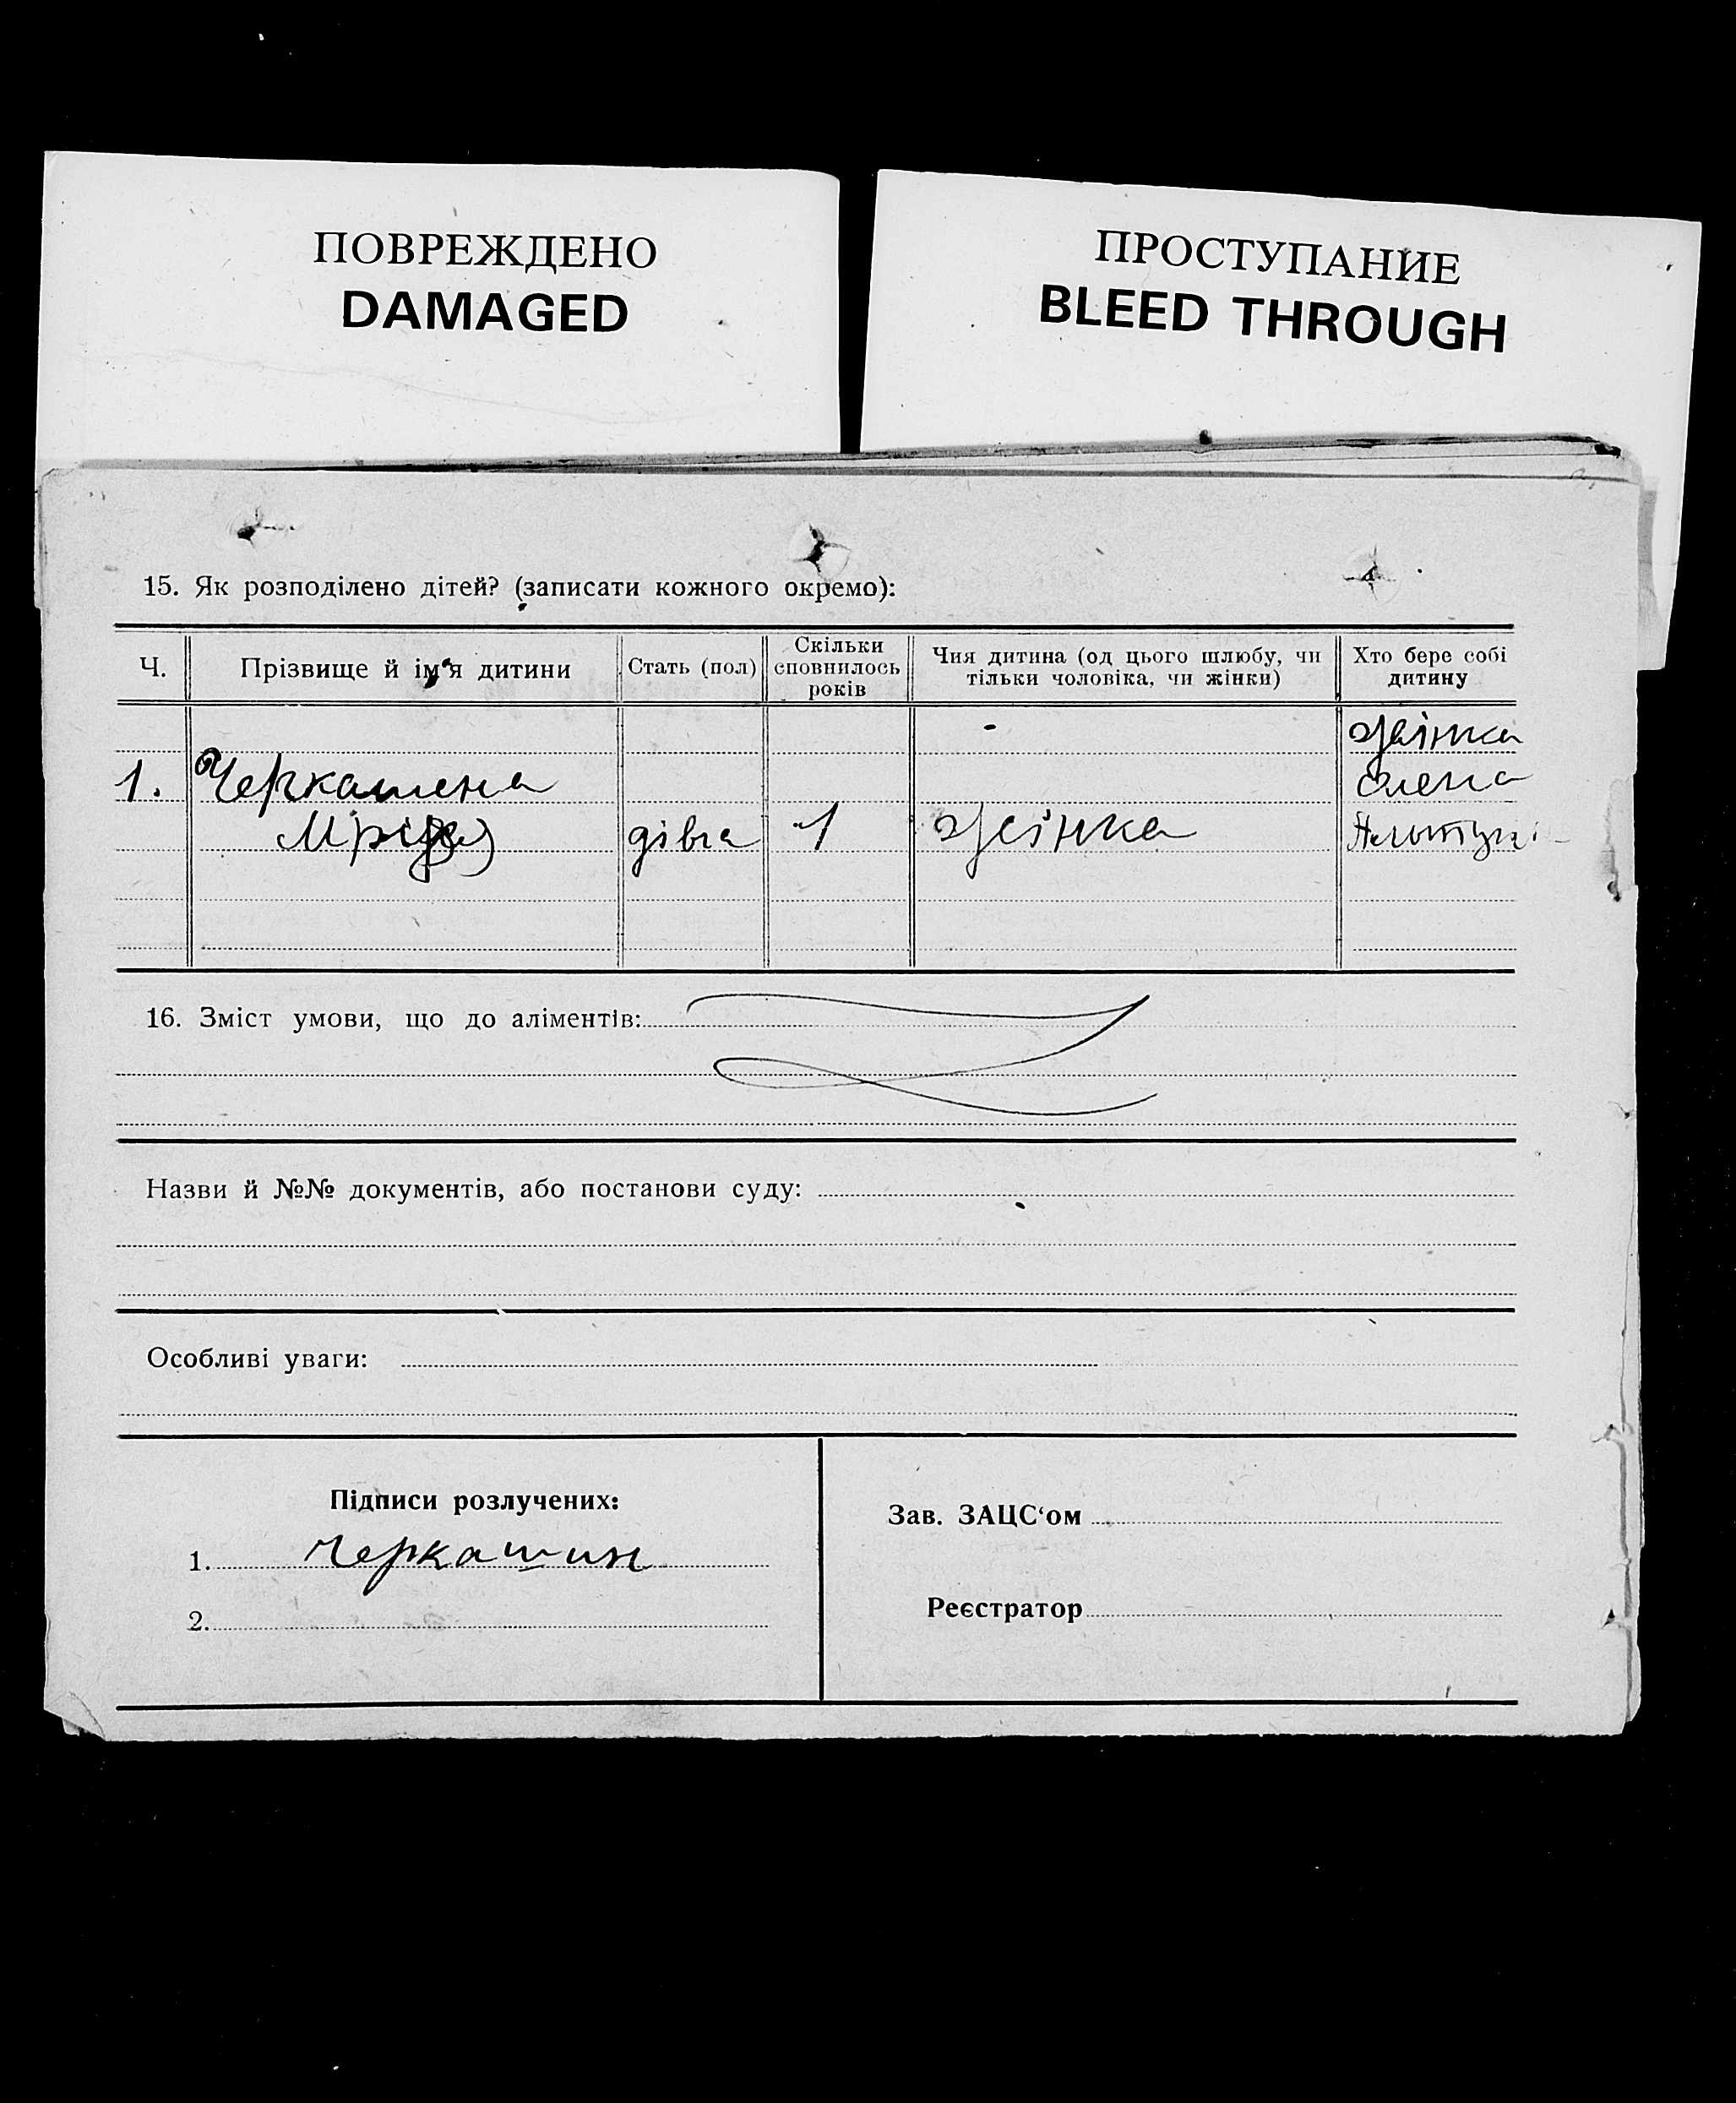 ПОВРЕЖДЕНО
DAMAGED
ПРОСТУПАНИЕ
BLEED THROUGH
15. Як розподілено дітей? (записати кожного окремо):
Ч.
Прізвище й ім'я дитини
Стать (пол)
Скільки
сповнилось
років
Чия дитина (од цього шлюбу, чи
тільки чоловіка, чи жінки)
Хто бере собі
дитину
жінка
1. Черкашена Олена
дівча 1 жінка
16. Зміст умови, що до аліментів:
Назви й №№ документів, або постанови суду:
Особливі уваги:
Підписи розлучених:
1. Черкашин
2.
Зав. ЗАЦС‘ом
Реєстратор